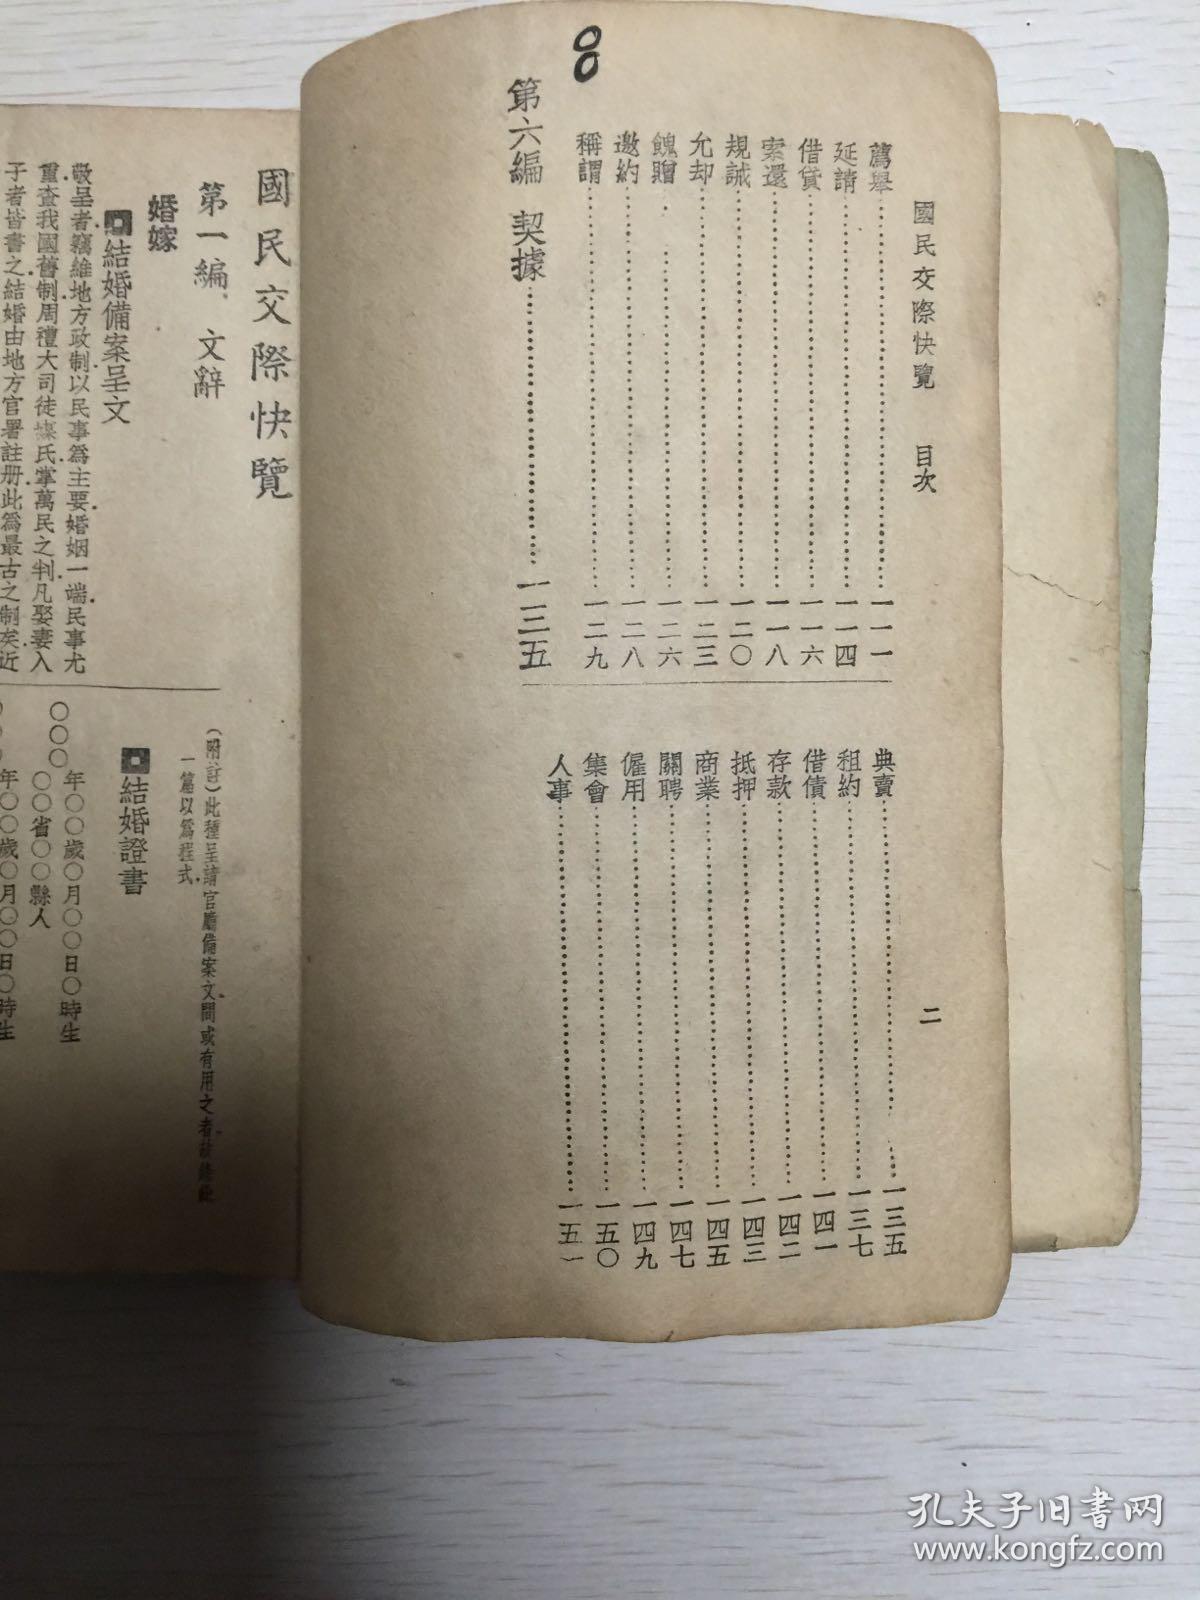 國民交際快覽　目次　二
薦舉⋯⋯一一一
延請⋯⋯一一四
借貸⋯⋯一一六
索還⋯⋯一一八
規誡⋯⋯一二〇
允却⋯⋯一二三
餽贈⋯⋯一二六
邀約⋯⋯一二八
稱謂⋯⋯一二九
第六編　契據⋯⋯一三五
典賣⋯⋯一三五
租約⋯⋯一三七
借債⋯⋯一四一
存款⋯⋯一四二
抵押⋯⋯一四三
商業⋯⋯一四五
關聘⋯⋯一四七
僱用⋯⋯一四九
集會⋯⋯一五〇
人事⋯⋯一五一
國民交際快覽
第一編　文辭
婚嫁
結婚備案呈文
敬呈者竊維地方政制以民事爲主要婚姻一端民事尤
重查我國舊制周禮大司徒媒氏掌萬民之判凡娶妻入
子者皆書之結婚由地方官署註册此爲最古之制矣近
(附註)此種呈請官廳備案文間或有用之者
一篇以爲程式
結婚證書
〇〇〇　年〇〇歲〇月〇〇日〇時生
〇〇省〇〇縣人
年〇〇歲〇月〇〇日〇時生
孔夫子旧书网
www.kongfz.com